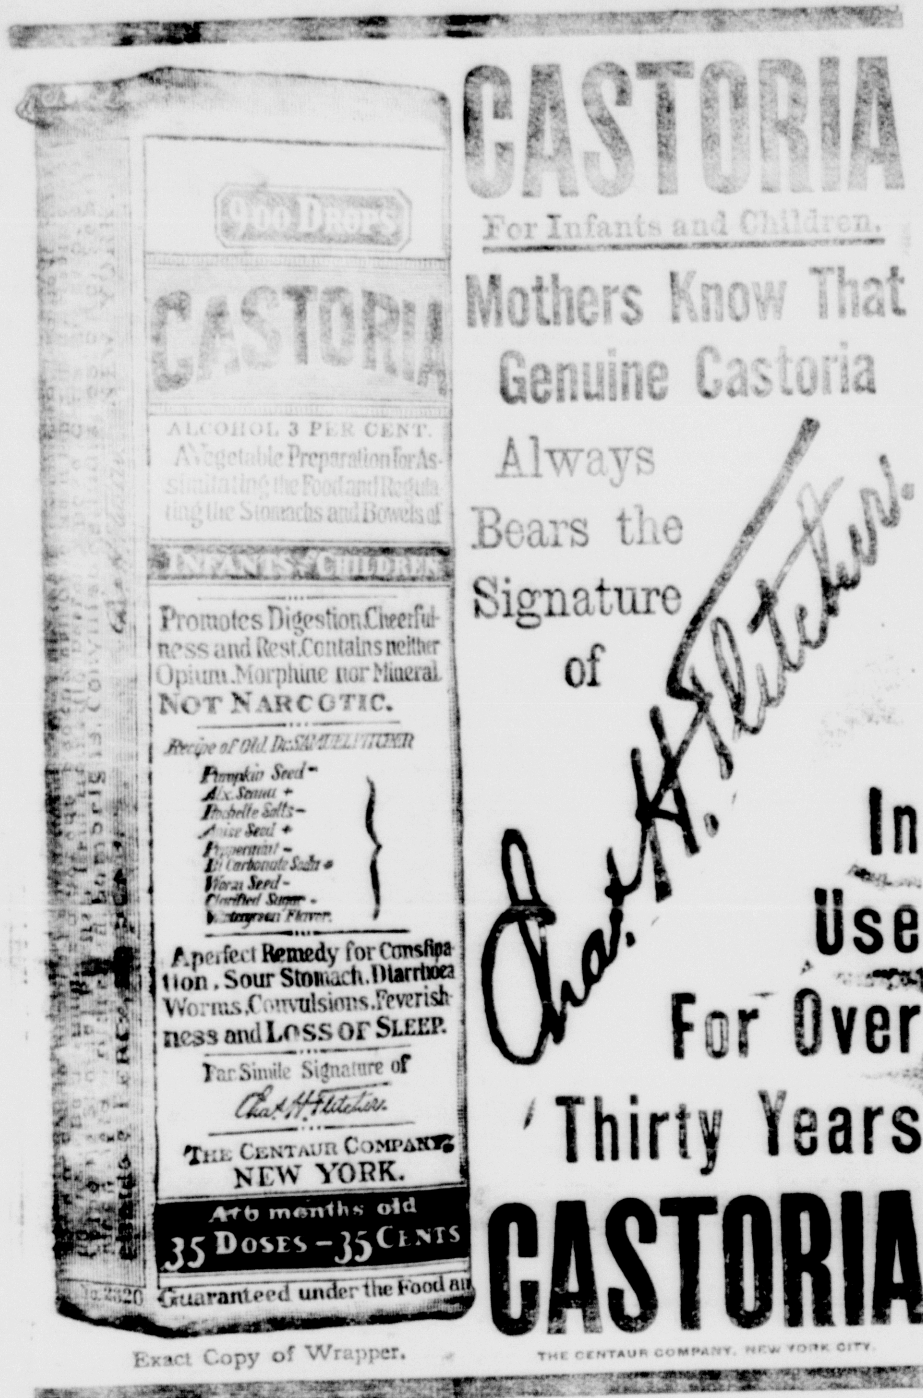 900 DROPS
CASTORIA
ALCOHOL 3 PER CENT.
A Vegetable Preparation for As-
similating the Food and Regula
ting the Stomachs and Bowels of
INFANTS & CHILDREN
Promotes Digestion.Cheerful-
ness and Rest.Contains neither
Opium.Morphine nor Mineral.
NOT NARCOTIC.
Recipe of Old Dr.SAMUEL PITCHER
Pumpkin Seed-
Alx.Senna +
Rochelle Salts-
Anise Seed +
Peppermint -
Bi Carbonate Soda +
Worm Seed -
Clarified Sugar -
Wintergreen Flavor.
A perfect Remedy for Constipa-
tion. Sour Stomach.Diarrhoea
Worms.Convulsions.Feverish-
ness and LOSS OF SLEEP.
Fac Simile Signature of
Chas H Fletcher.
THE CENTAUR COMPANY,
NEW YORK.
At 6 months old
35 DOSES - 35 CENTS
Guaranteed under the Food an
Exact Copy of Wrapper.
CASTORIA
For Infants and Children.
Mothers Know That
Genuine Castoria
Always
Bears the
Signature
of
Chas. H. Fletcher.
In
Use
For Over
Thirty Years
CASTORIA
THE CENTAUR COMPANY, NEW YORK CITY.